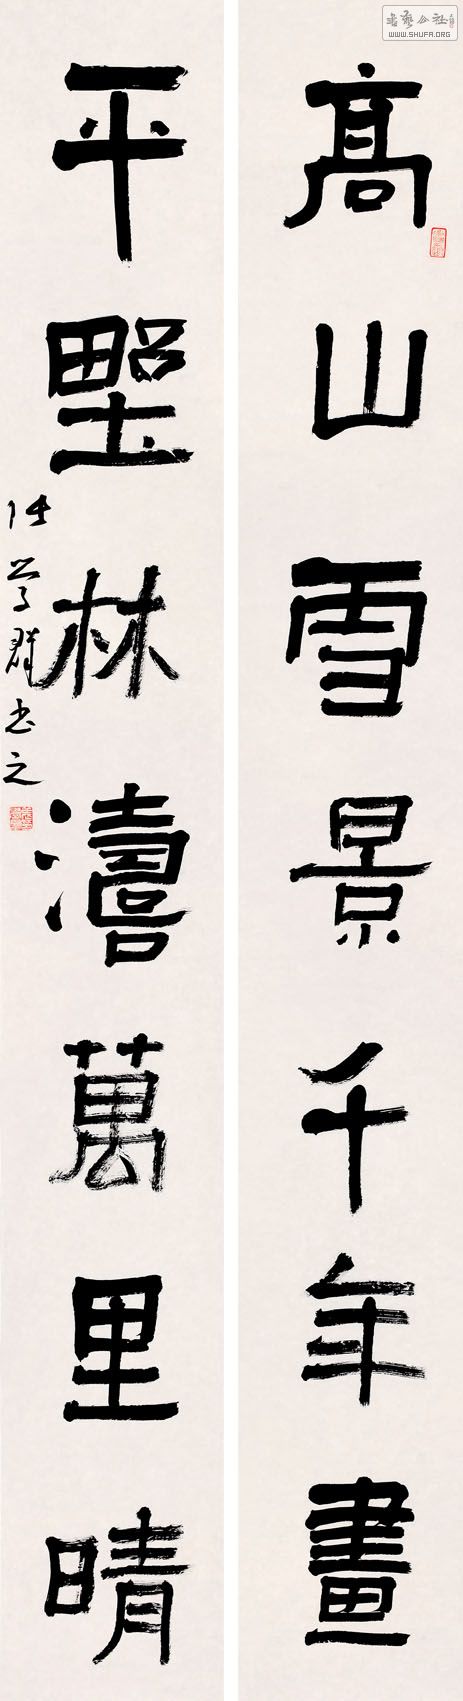 高山雪景千年畫
平野林濤萬里晴
張學群書之
WWW.SHUFA.ORG